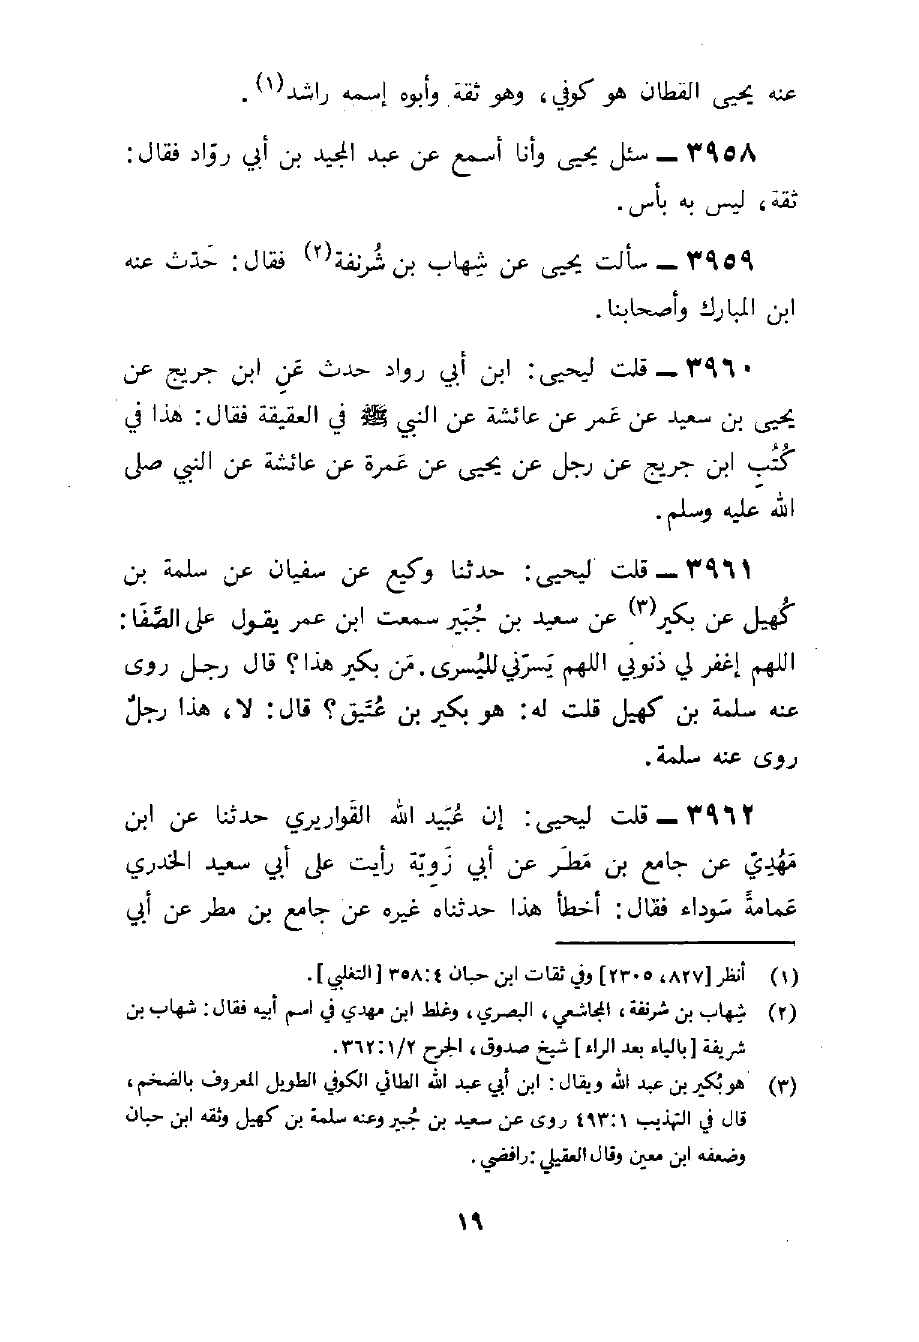 عنه يحيى القطان هو كوفي، وهو ثقة وأبوه إسمه راشد(١).
٣٩٥٨ ــ سئل يحيى وأنا أسمع عن عبد المجيد بن أبي روّاد فقال:
ثقة، ليس به بأس.
٣٩٥٩ ــ سألت يحيى عن شِهاب بن شُرنفة(٢) فقال: حَدّث عنه
ابن المبارك وأصحابنا.
٣٩٦٠ ــ قلت ليحيى: ابن أبي رواد حدث عَنِ ابن جريج عن
يحيى بن سعيد عن عَمر عن عائشة عن النبي ﷺ في العقيقة فقال: هذا في
كُتُبِ ابن جريج عن رجل عن يحيى عن عَمرة عن عائشة عن النبي صلى
الله عليه وسلم.
٣٩٦١ ــ قلت ليحيى: حدثنا وكيع عن سفيان عن سلمة بن
كُهيل عن بكير(٣) عن سعيد بن جُبَير سمعت ابن عمر يقول على الصَّفَا:
اللهم إغفر لي ذنوبي اللهم يَسرّني لليُسرى. مَن بكير هذا؟ قال رجل روى
عنه سلمة بن كهيل قلت له: هو بكير بن عُتَيق؟ قال: لا، هذا رجلٌ
روى عنه سلمة.
٣٩٦٢ ــ قلت ليحيى: إن عُبَيد الله القَواريري حدثنا عن ابن
مَهْدِيّ عن جامع بن مَطَر عن أبي رَوِيّة رأيت على أبي سعيد الخدري
عَمامةً سَوداء فقال: أخطأ هذا حدثناه غيره عن جامع بن مطر عن أبي
(١) أنظر [٨٢٧، ٢٣٠٥] وفي ثقات ابن حبان ٤: ٣٥٨ [التغلبي].
(٢) شِهاب بن شرنفة، المجاشعي، البصري، وغلط ابن مهدي في اسم أبيه فقال: شهاب بن
شريفة [بالياء بعد الراء] شيخ صدوق، الجرح ١/٢: ٣٦٢.
(٣) هو بُكير بن عبد الله ويقال: ابن أبي عبد الله الطائي الكوفي الطويل المعروف بالضخم،
قال في التهذيب ١: ٤٩٣ روى عن سعيد بن جُبير وعنه سلمة بن كهيل وثقه ابن حبان
وضعفه ابن معين وقال العقيلي: رافضي.
١٩